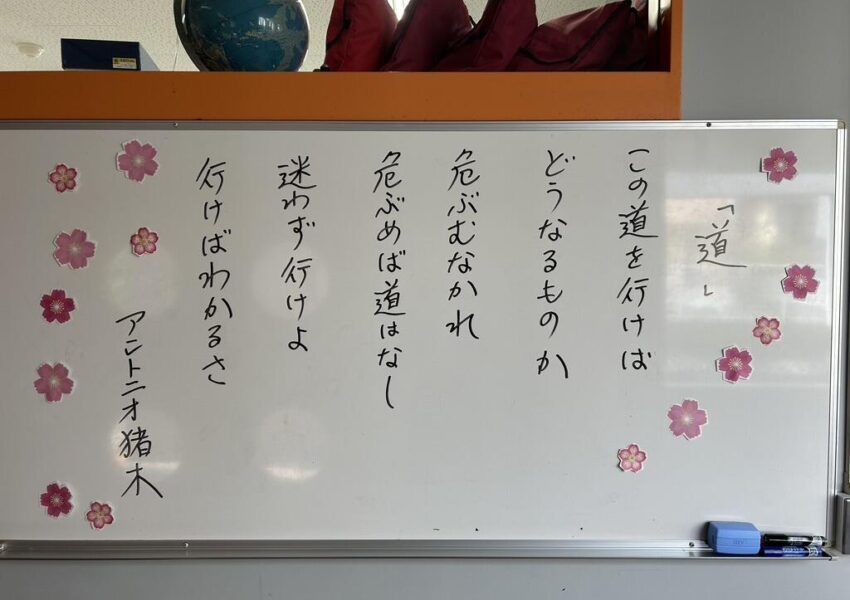 「道」
この道を行けば
どうなるものか
危ぶむなかれ
危ぶめば道はなし
迷わず行けよ
行けばわかるさ
アントニオ猪木